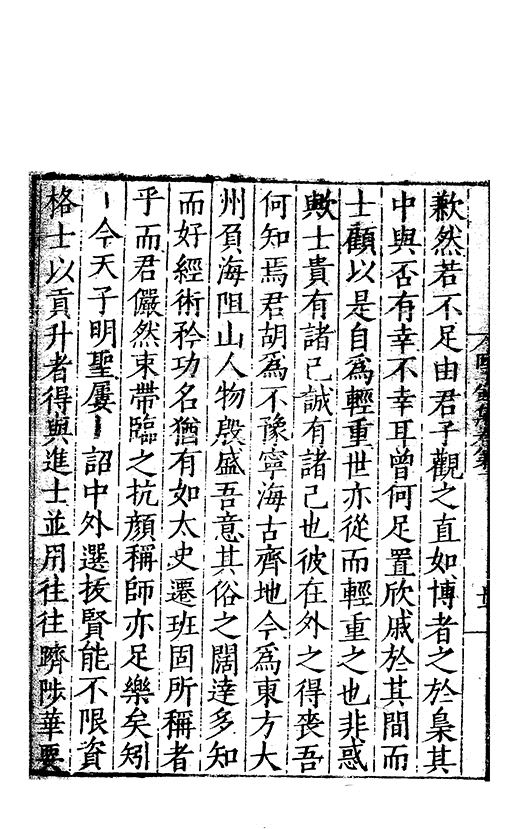 歉然若不足由君子觀之直如博者之於梟其
中與否有幸不幸耳曾何足置欣戚於其間而
士顧以是自爲輕重世亦從而輕重之也非惑
歟士貴有諸己誠有諸己也彼在外之得喪吾
何知焉君胡為不豫寧海古齊地今為東方大
州負海阻山人物殷盛吾意其俗之闊達多知
而好經術矜功名猶有如太史遷班固所稱者
乎而君儼然束帶臨之抗顏稱師亦足樂矣矧
今天子明聖屢詔中外選抜賢能不限資
格士以貢升者得與進士並用往往躋陟華要